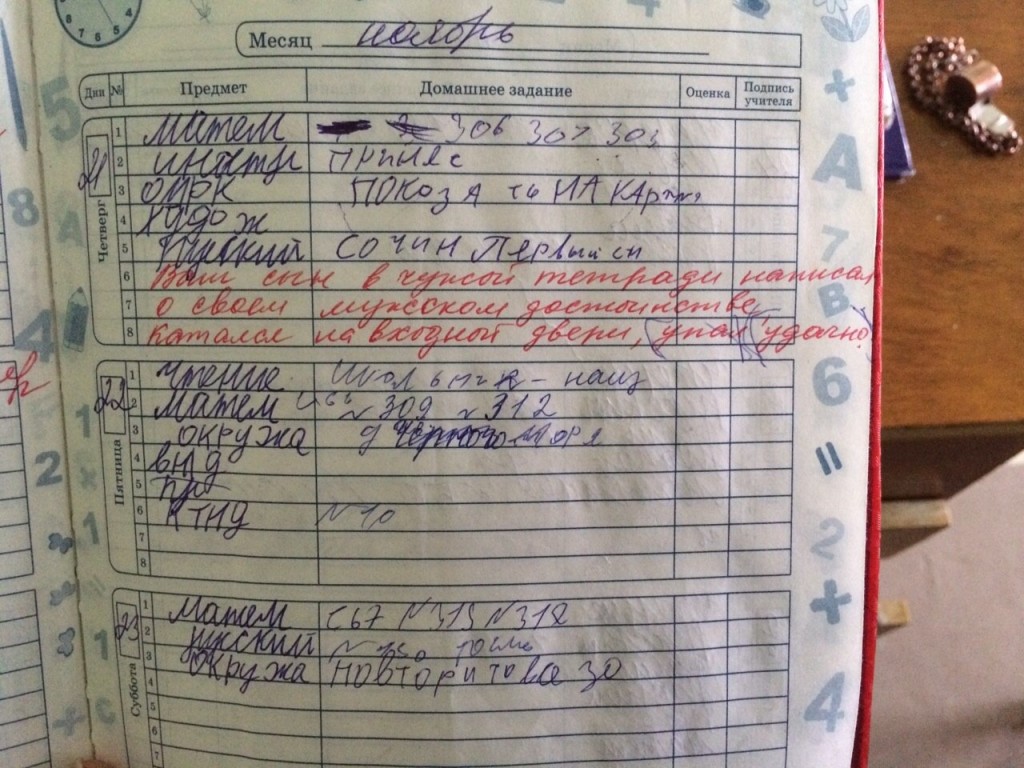 Месяц ноябрь
Дни № Предмет Домашнее задание Оценка Подпись учителя
21 Четверг
1 матем 306 307
2
3 окрк показать на карте
4 худож
5 русский сочин первый сн
6 Ваш сын в чужой тетради написал
7 о своем мужском достоинстве,
8 катался на входной двери, упал (удачно)
22 Пятница
1 чтение
2 матем с66 №309 №312
3 окружа Черного моря
4 внд
5
6 ктнд №10
7
8
23 Суббота
1 матем с67 №315 №318
2 русский
3 окружа повторит
4
5
6
7
5
8
4
2
+
А
7
В
6
=
2
+
4